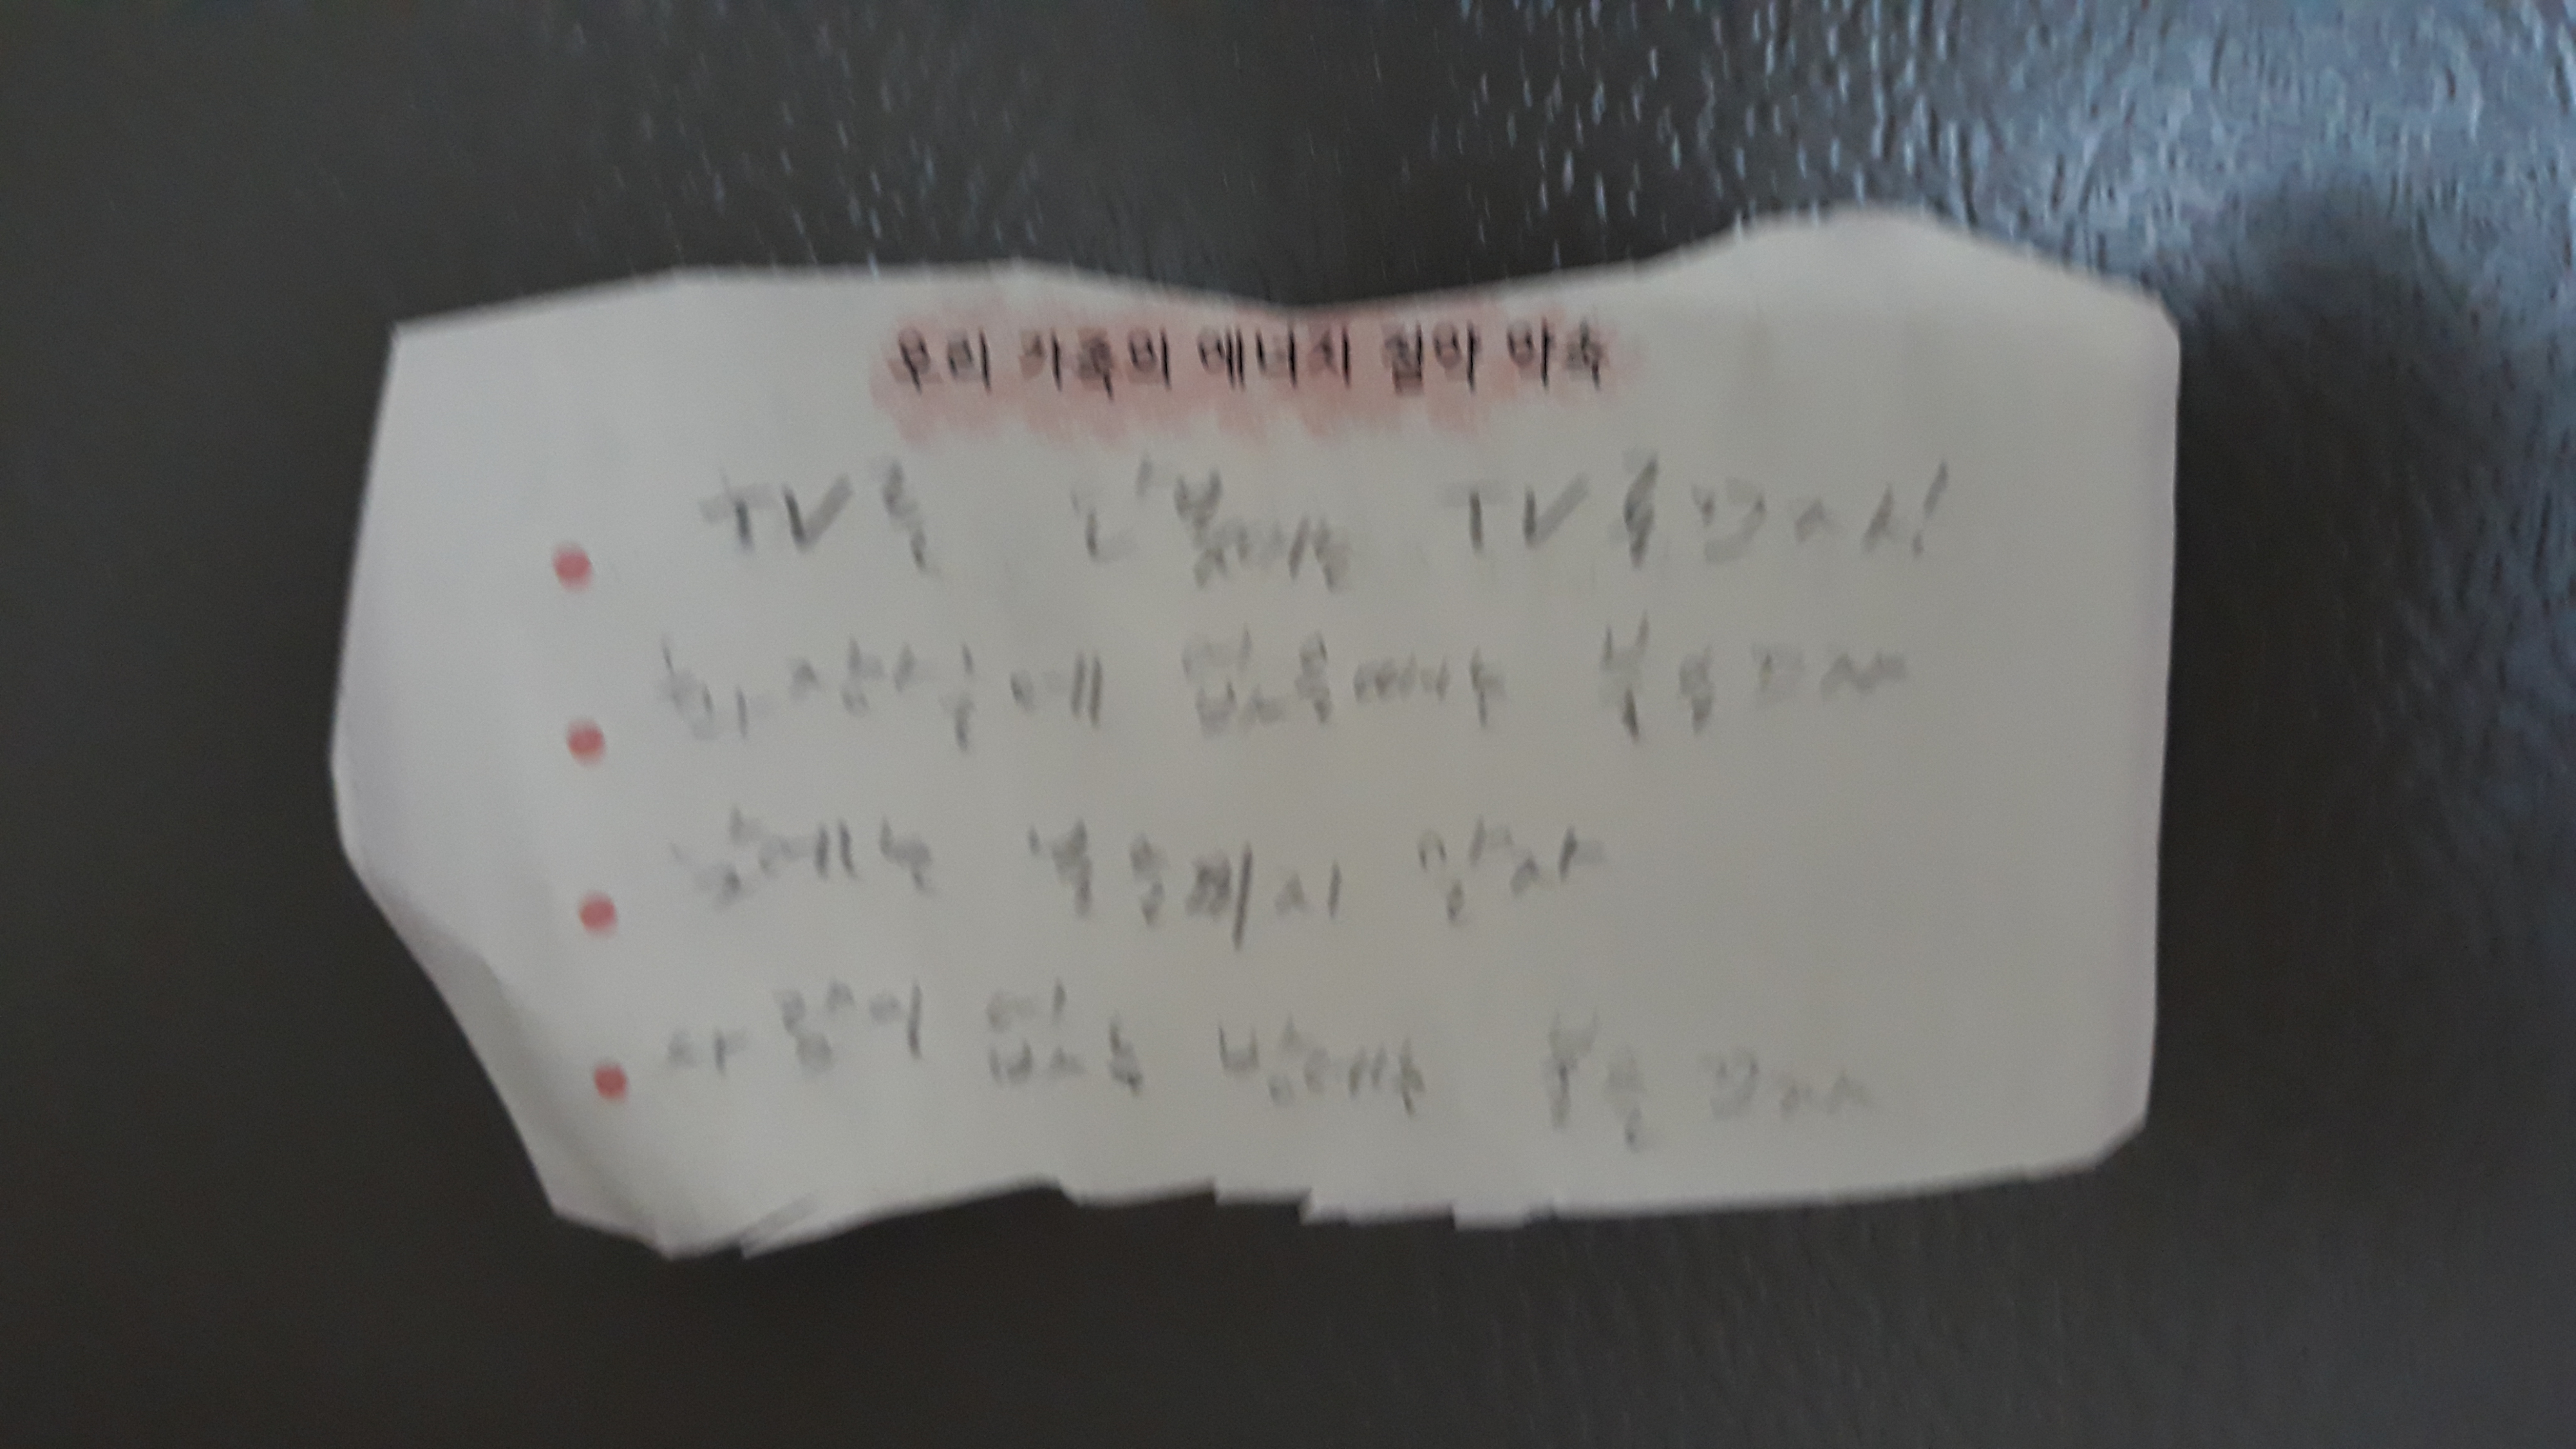 우리 가족의 에너지 절약 약속
TV를 안볼때는 TV를 끄자!
화장실에 없을때는 불을끄자
낮에는 불을켜지 말자
사람이 없는 방에는 불을 끄자